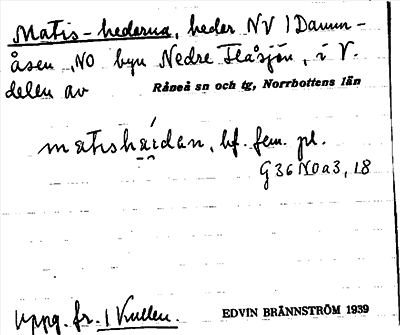 Matis-hederna, heder NV /Damm-
åsen, NO byn Nedre Flåsjön, i V.
delen av Råneå sn och tg, Norrbottens län
matishæidan, bf. fem. pl.
G36N0a3, 18
Uppg. fr. / Kullen. EDVIN BRÄNNSTRÖM 1939